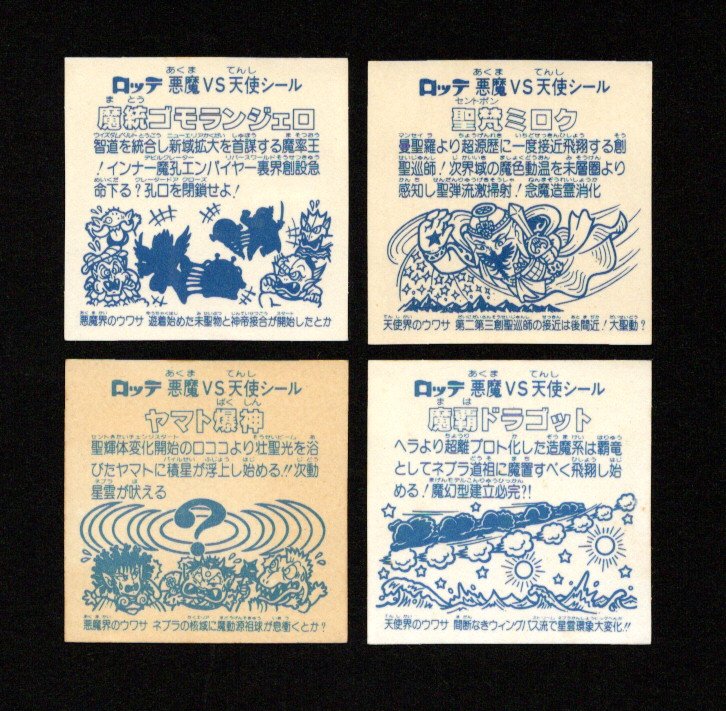 ロッテ 悪魔VS天使シール
魔統ゴモランジェロ
智道を統合し新域拡大を首謀する魔率王
!インナー魔孔エンパイヤー裏界創設急
命下る?孔口を閉鎖せよ!
悪魔界のウワサ 遊着始めた未聖物と神帝接合が開始したとか
ロッテ 悪魔VS天使シール
聖梵ミロク
曼聖羅より超源歴に一度接近飛翔する創
聖巡師!次界域の魔色動温を未層圏より
感知し聖弾流激掃射!念魔造霊消化
天使界のウワサ 第二第三創聖巡師の接近は後間近!大聖動?
ロッテ 悪魔VS天使シール
ヤマト爆神
聖輝体変化開始のロココより壮聖光を浴
びたヤマトに積星が浮上し始める!!次動
星雲が吠える
?
悪魔界のウワサ ネブラの核域に魔動源祖球が息衝くとか?
ロッテ 悪魔VS天使シール
魔覇ドラゴット
ヘラより超離プロト化した造魔系は覇竜
としてネブラ道祖に魔置すべく飛翔し始
める!魔幻型建立必完?!
天使界のウワサ 間断なきウィングパス流で星雲環象大変化!!